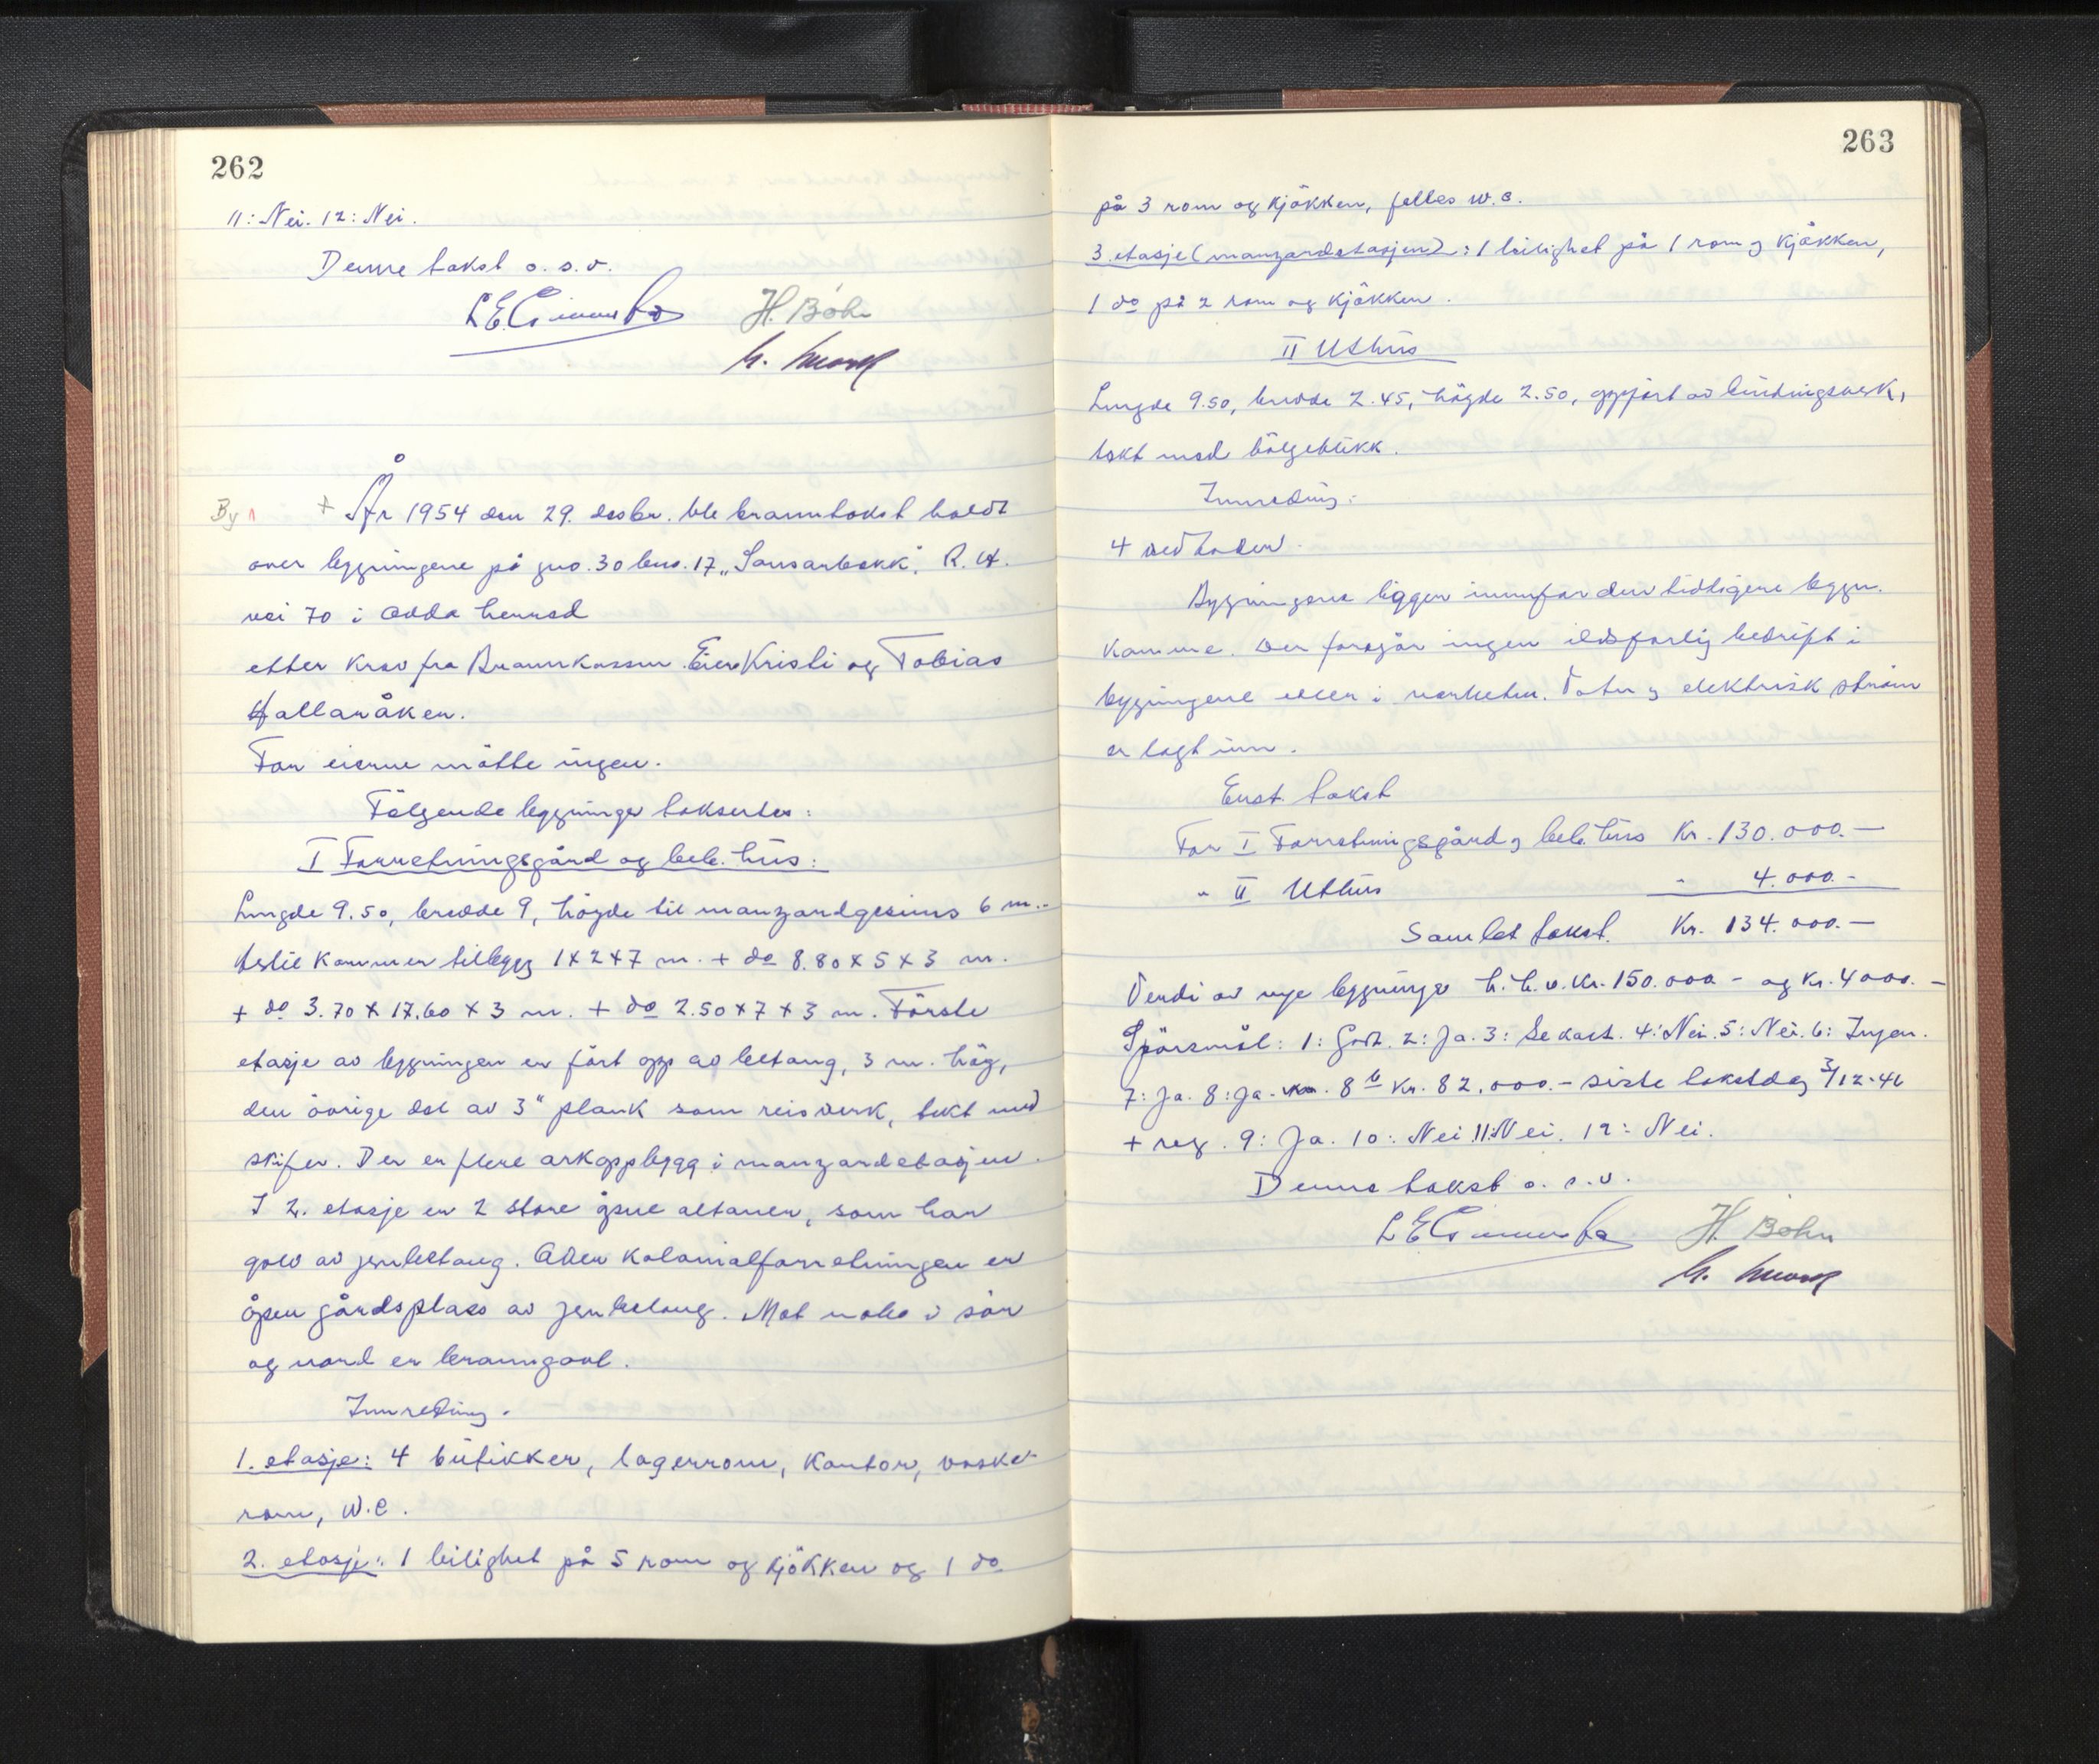 262
11: Nei. 12: Nei.
Denne takst o.s.v.
H. Böhn
By 1 + År 1954 den 29. desbr. ble branntakst holdt
over bygningene på gno. 30 bno. 17 „Sansarbakk". R. A.
vei 70 i Odda herred
etter krav fra Brannkassen. Eier Kristi og Tobias
Hallanåker.
For eierne møtte ingen.
Følgende bygninger takseres:
I Forretningsgård og beb. hus:
Lengde 9.50, bredde 9, høgde til manzardgesims 6 m.
Hertil kommer tilbygg 1 x 2 x 7 m. + do 8.80 x 5 x 3 m.
+ do 3.70 x 17.60 x 3 m. + do 2.50 x 7 x 3 m. Första
etasje av bygningen er ført opp av betong, 3 m. høg,
den øvrige del av 3" plank som reisverk, tekt med
skifer. Der er flere arkoppbygg i manzardetasjen.
I 2. etasje er 2 store åpne altaner, som har
golv av jernbetong. Over kolonialforretningen er
åpen gårdsplass av jernbetong. Mot nabo i sør
og nord er branngavl.
Innreding.
1. etasje: 4 butikker, lagerrom, kontor, vaske-
rom, W.C.
2. etasje: 1 leilighet på 5 rom og kjøkken og 1 do
263
på 3 rom og kjøkken, felles w.c.
3. etasje (manzardetasjen): 1 leilighet på 1 rom og kjøkken,
1 do på 2 rom og kjøkken.
II Uthus
Lengde 9.50, bredde 2.45, høgde 2.50, oppført av bindingsverk,
tekt med bølgeblikk.
Innreding:
4 vedboder.
Bygningene ligger innafor den tidligere bygn.
kommune. Der foregår ingen ildsfarlig bedrift i
bygningene eller i nærheten. Vatn og elektrisk strøm
er lagt inn.
Enst. takst
For I Forretningsgård og beb. hus Kr. 130.000.—
" II Uthus " 4.000.-
Samlet takst. Kr. 134.000.—
Verdi av nye bygninger h.h.v. Kr. 150.000 - og Kr. 4000.-
Spörsmål: 1: Godt. 2: Ja. 3: Se kart. 4: Nei. 5: Nei. 6: Ingen.
7: Ja. 8: Ja. 8 b Kr. 82.000.- siste takstdag 3/12-46
+ reg. 9: Ja. 10: Nei 11: Nei. 12: Nei.
Denne takst o.s.v.
H. Böhn